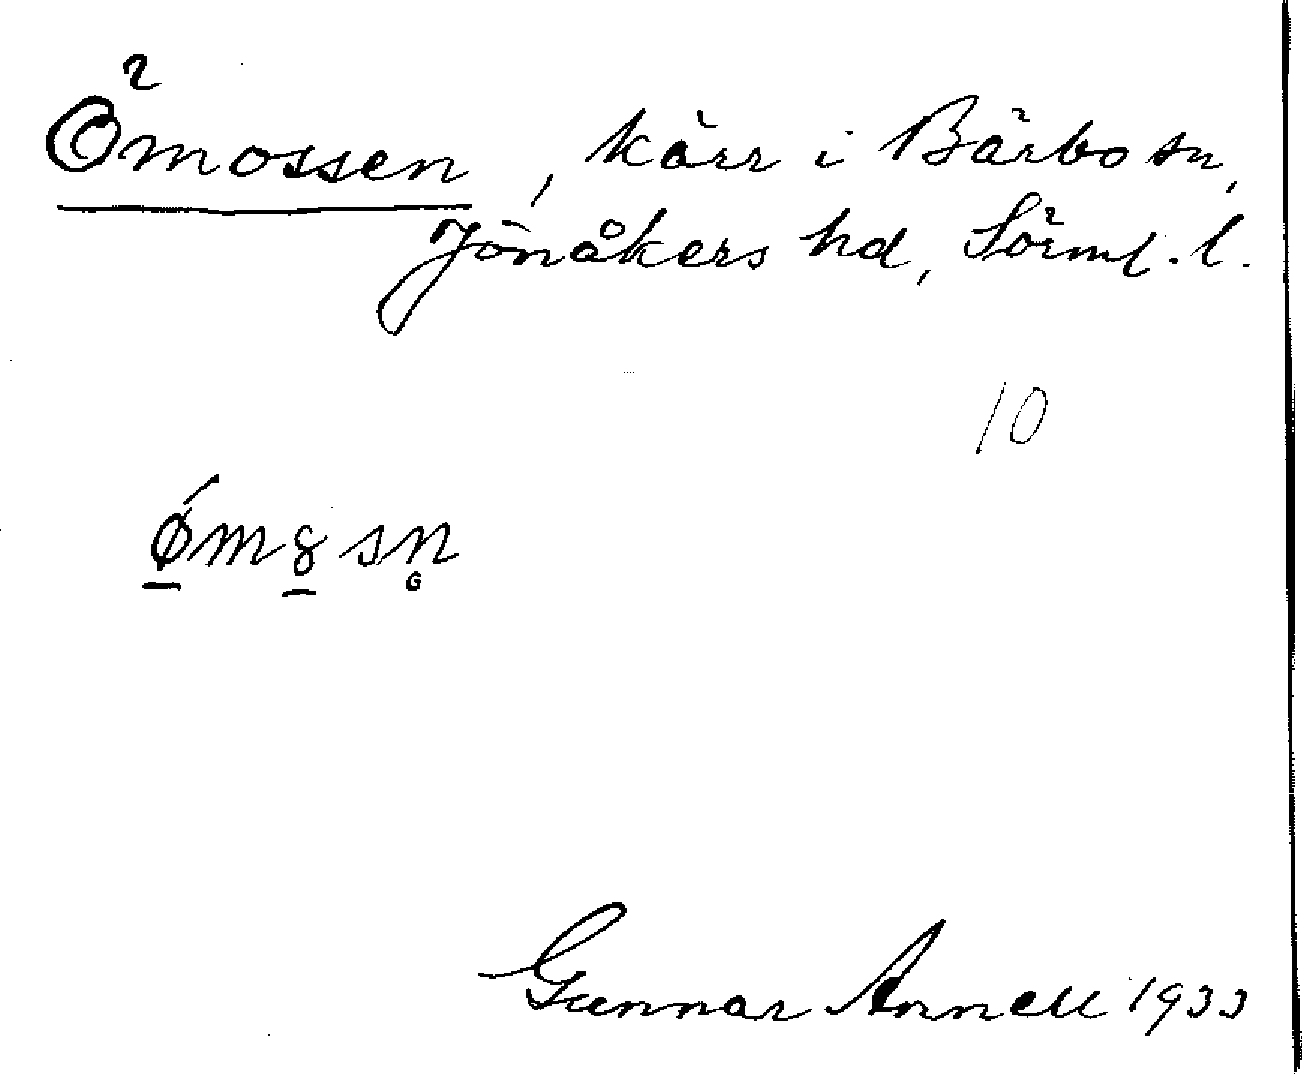 Ömossen, kärr i Bärbo sn,
Jönåkers hd, Sörml. l.
10
ǿ̠m8̠sn̥
Gunnar Annell 1933